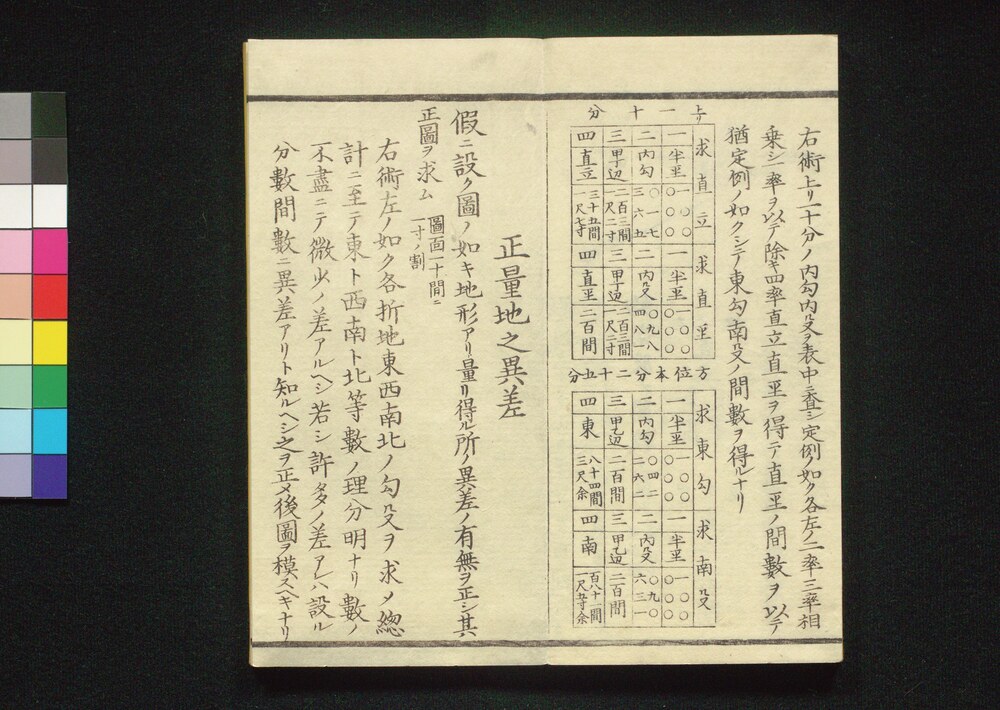 右術上リ一十分ノ内勾内殳ヲ表中ニ査シ定例ノ如ク各左ノ二率三率相
乗シ一率ヲ以テ除キ四率直立直平ヲ得テ直平ノ間數ヲ以テ
猶定例ノ如クシテ東勾南殳ノ間數ヲ得ルナリ
上リ一十分
求直立
一 半平 一〇〇〇〇〇
二 内勾 〇一七三六五
三 甲子辺 二百三間二尺二寸
四 直立 三十五間一尺七寸
求直平
一 半平 一〇〇〇〇〇
二 内殳 〇九八四八一
三 甲子辺 二百三間一尺二寸
四 直平 二百間
方位本分二十五分
求東勾
一 半平 一〇〇〇〇〇
二 内勾 〇四二二六二
三 甲乙辺 二百間
四 東 八十四間三尺余
求南殳
一 半平 一〇〇〇〇〇
二 内殳 〇九〇六三一
三 甲乙辺 二百間
四 南 百八十一間一尺五寸余
正量地之異差
假ニ設ク圖ノ如キ地形アリ量リ得ル所ノ異差ノ有無ヲ正シ其
正圖ヲ求ム 圖面一十間ニ一寸ノ割
右術左ノ如ク各折地東西南北ノ勾殳ヲ求メ總
計ニ至テ東ト西南ト北等數ノ理分明ナリ數ノ
不盡ニテ微少ノ差アルヘシ若シ許多ノ差アレハ設ル
分數間數ニ異差アリト知ルヘシ之ヲ正メ後圖ヲ模スヘキナリ